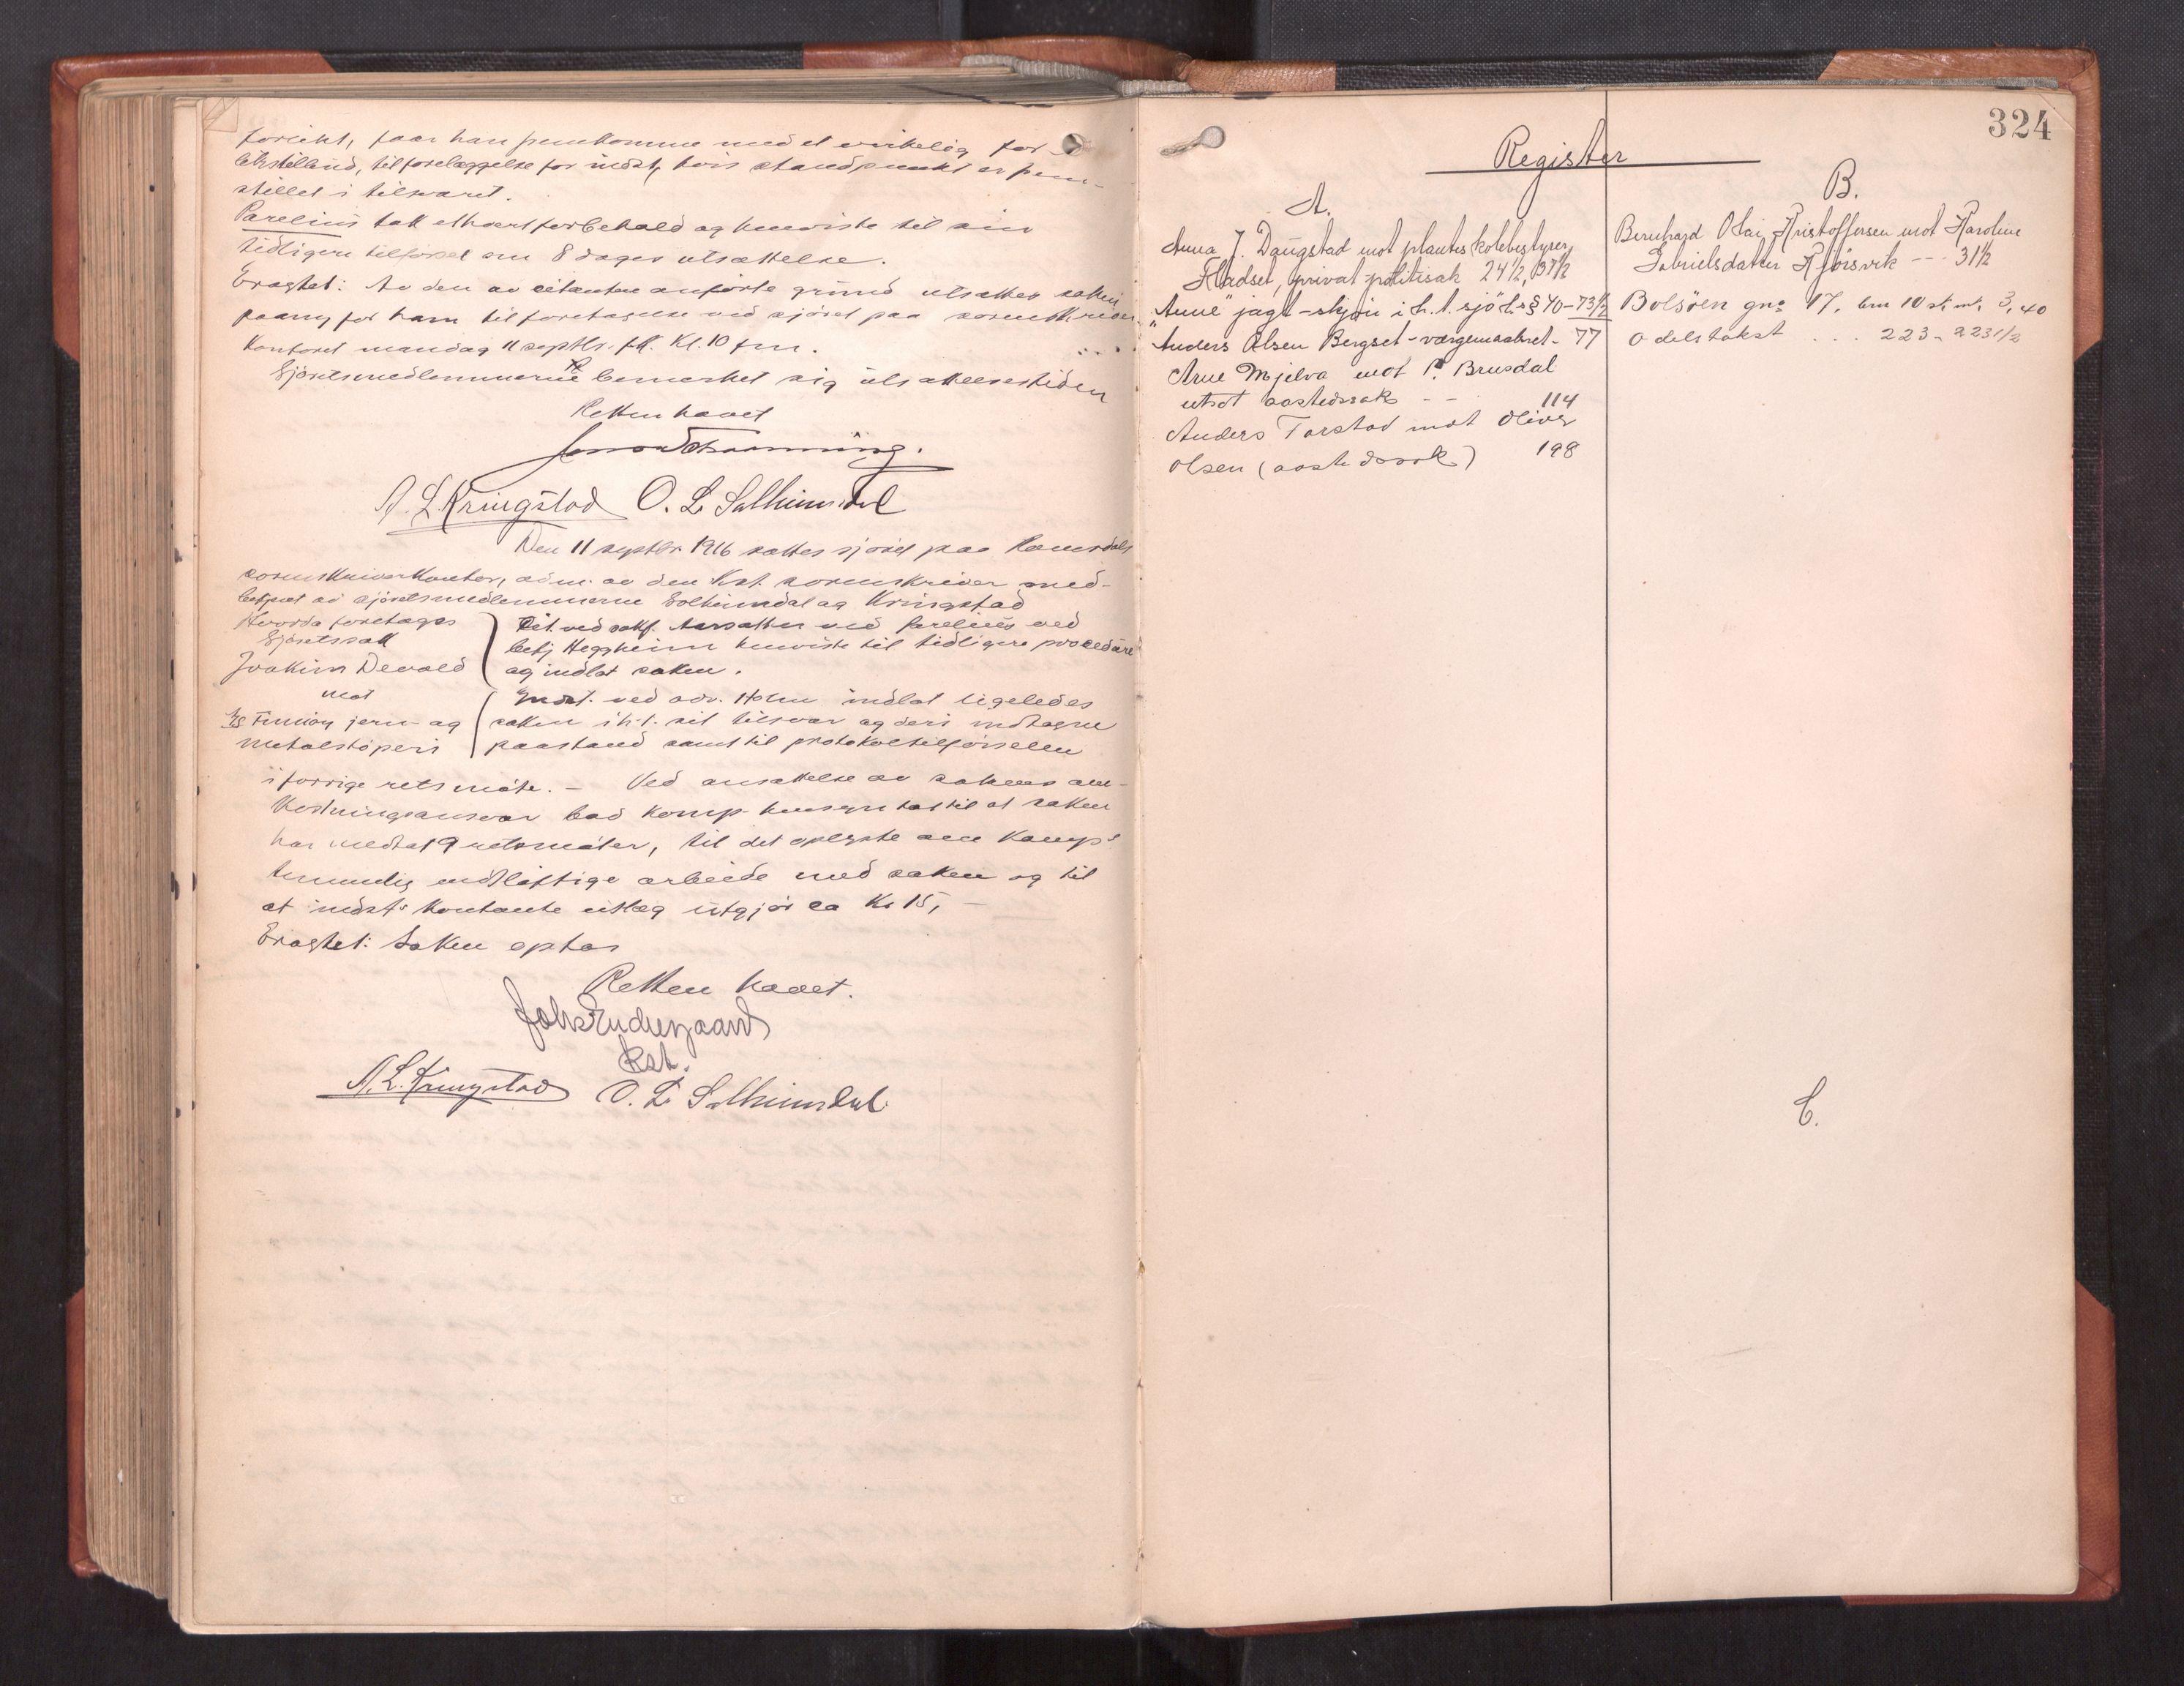 forlikt, faar han fremkomme med et virkelig for-
likstilbud, til forelæggelse for indst, hvis standpunkt er frem-
stillet i tilsvaret.
Parelius tok ethvert forbehold og henviste til sin
tidligere tilförsel om 8 dages utsættelse.
Eragtet: Av den av citanten anförte grund utsættes saken
paany for ham til foretagelse ved sjöret paa sorenskriver
kontoret mandag 11 septbr. fk. Kl. 10 fm.
Sjöretsmedlemmerne bemerket sig utsættelsestiden
Retten hævet
A. L. Kringstad O. L. Solheimsdal
Den 11 septbr 1916 sattes sjöret paa Romsdals
sorenskriverkontor, adm. av den Kst. sorenskriver med-
betjent av sjöretsmedlemmerne Solheimdal og Kringstad
Hvorda foretages
Sjöretssak
Joakim Devold
mot
A/S Finnöy jern- og
metalstöperi
Cit. ved sakf. Aarsæther ved Parelius ved
betj Heggheim henviste til tidligere procedure
og indlot saken.
Indst. ved adv. Holm indlot ligeledes
saken i h.t. sit tilsvar og deri indtagne
paastand samt til protokoltilförselen
i forrige retsmöte. – Ved ansættelse av sakens om-
kostningsansvar bad komp. hensyn tat til at saken
har medtat 9 retsmöter, til det oplyste om komp's
temmelig vidlöftige arbeide med saken og til
at indst's kontante utlæg utgjör ca Kr 15,–
Eragtet: Saken optas
Retten hævet.
Kst.
A. L. Kringstad O. L. Solheimsdal
324
Register
A.
Anna J. Daugstad mot planteskolebestyrer
Hadset, privat politisak 24½, 37½
"Anne" jagt – skjön i h. t. sjöl. § 40 – 73½
Anders Olsen Bergset – værgemaalret. – 77
Arne Mjelva mot P. Brusdal
utsat aastedssak – – 114
Anders Torstad mot Oliver
Olsen (aastedssak) 198
B.
Bernhard Olai Kristoffersen mot Karoline
Gabrielsdatter Kjörsvik – – – 31½
Bolsöen gnr 17, bnr 10 sk. m. 3,40
Odelstakst . . . 223 – 223½
C.